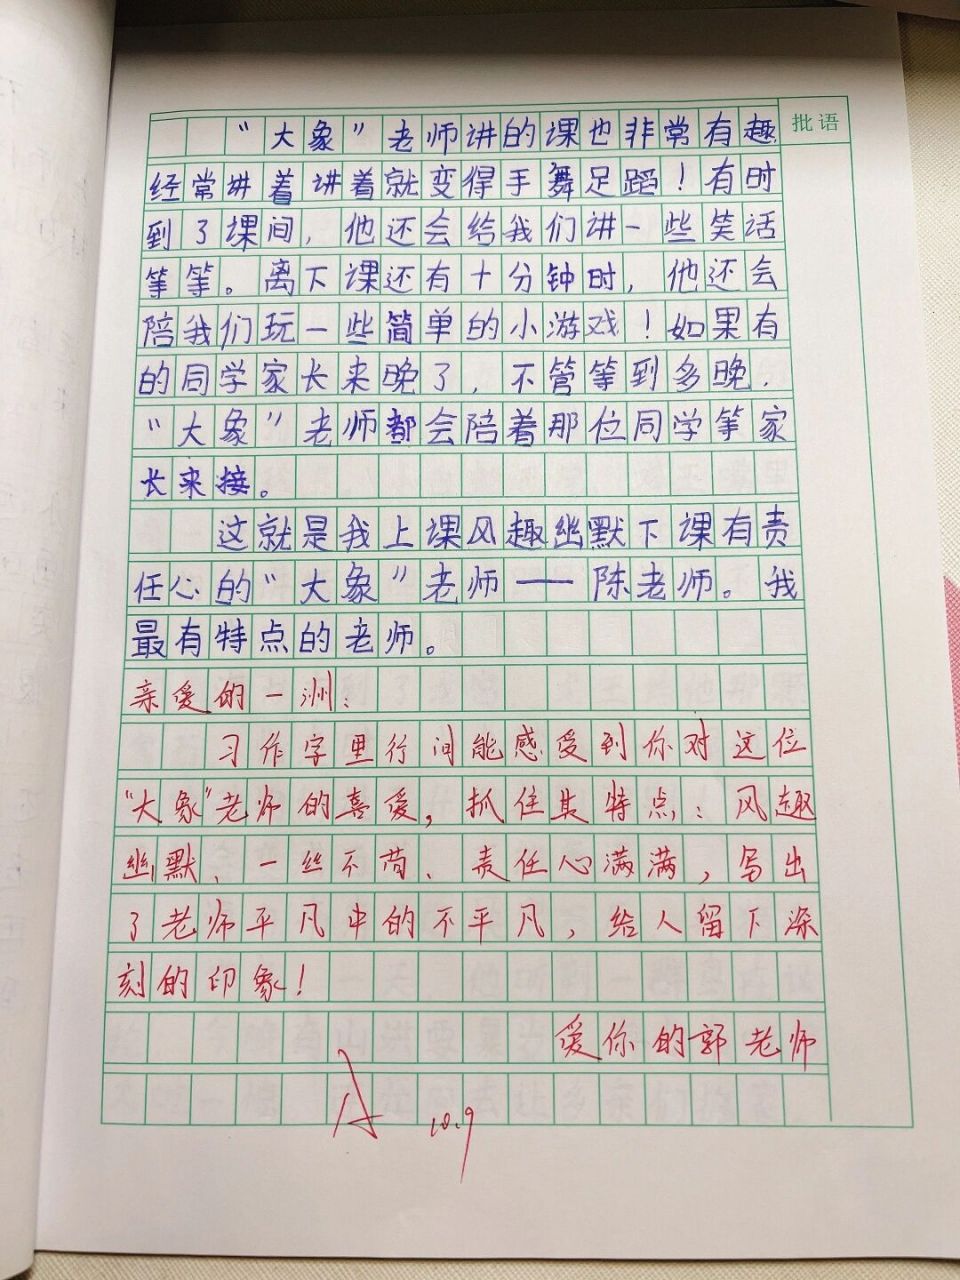 批语
“大象”老师讲的课也非常有趣
经常讲着讲着就变得手舞足蹈！有时
到了课间，他还会给我们讲一些笑话
等等。离下课还有十分钟时，他还会
陪我们玩一些简单的小游戏！如果有
的同学家长来晚了，不管等到多晚，
“大象”老师都会陪着那位同学等家
长来接。
这就是我上课风趣幽默下课有责
任心的“大象”老师——陈老师。我
最有特点的老师。
亲爱的一洲：
习作字里行间能感受到你对这位
“大象”老师的喜爱，抓住其特点：风趣
幽默、一丝不苟、责任心满满，写出
了老师平凡中的不平凡，给人留下深
刻的印象！
爱你的郭老师
A 10.9